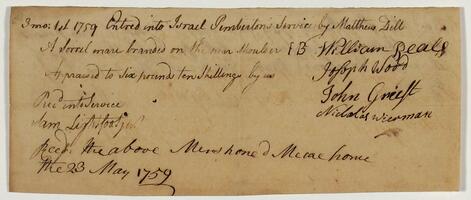 3 mo: 1st 1759 Entred into Israel Pemberton's Service by Matthew Dill
A Sorrel mare branded on the near Shoulder IB William Beals
Apraised to Six pounds ten Shillings by us Joseph Wood
John Griest
Nicholas Wierman
Recd into Service
Sam Lightfoot Junr
Recd the above Menshoned Meare home
the 23 May 1759